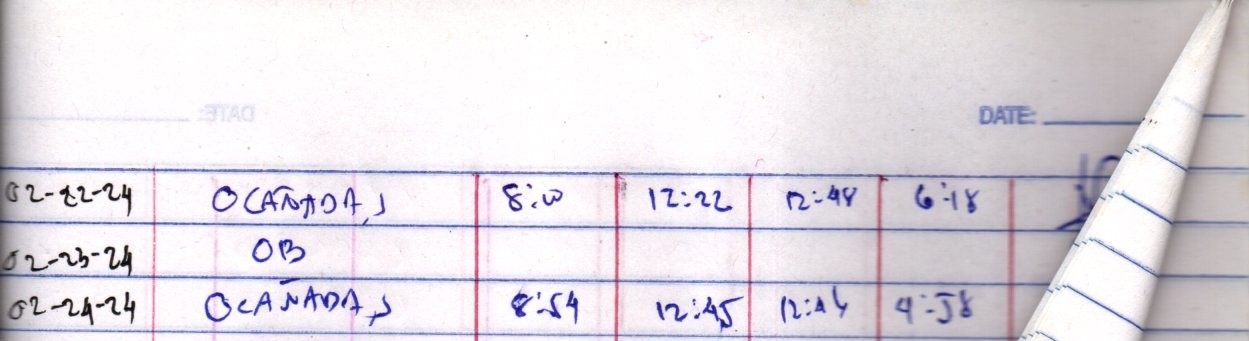 DATE:
DATE:
02-22-24 OCAÑADA, J 8:00 12:22 12:48 6:18
02-23-24 OB
02-24-24 OCAÑADA, J 8:54 12:45 4:58